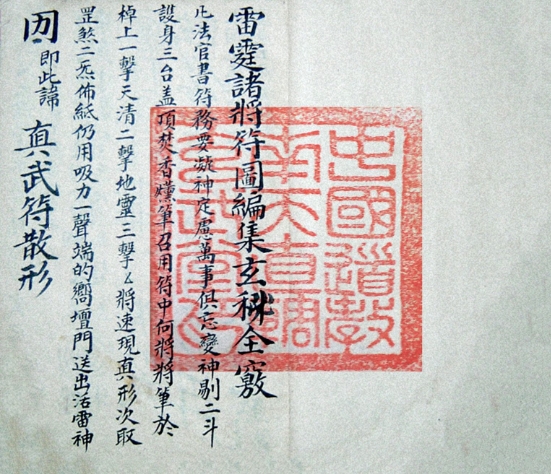 雷霆諸將符圖編集玄秘全竅
凡法官書符務要凝神定慮萬事俱忘變神剔二斗
設身三台盖頂焚香燻筆召用符中何將將筆於
棹上一擊天清二擊地靈三擊厶將速現真形次取
罡煞二炁佈紙仍用吸力一聲端的嚮壇門送出活雷神
即此諱 真武符散形
中國道教